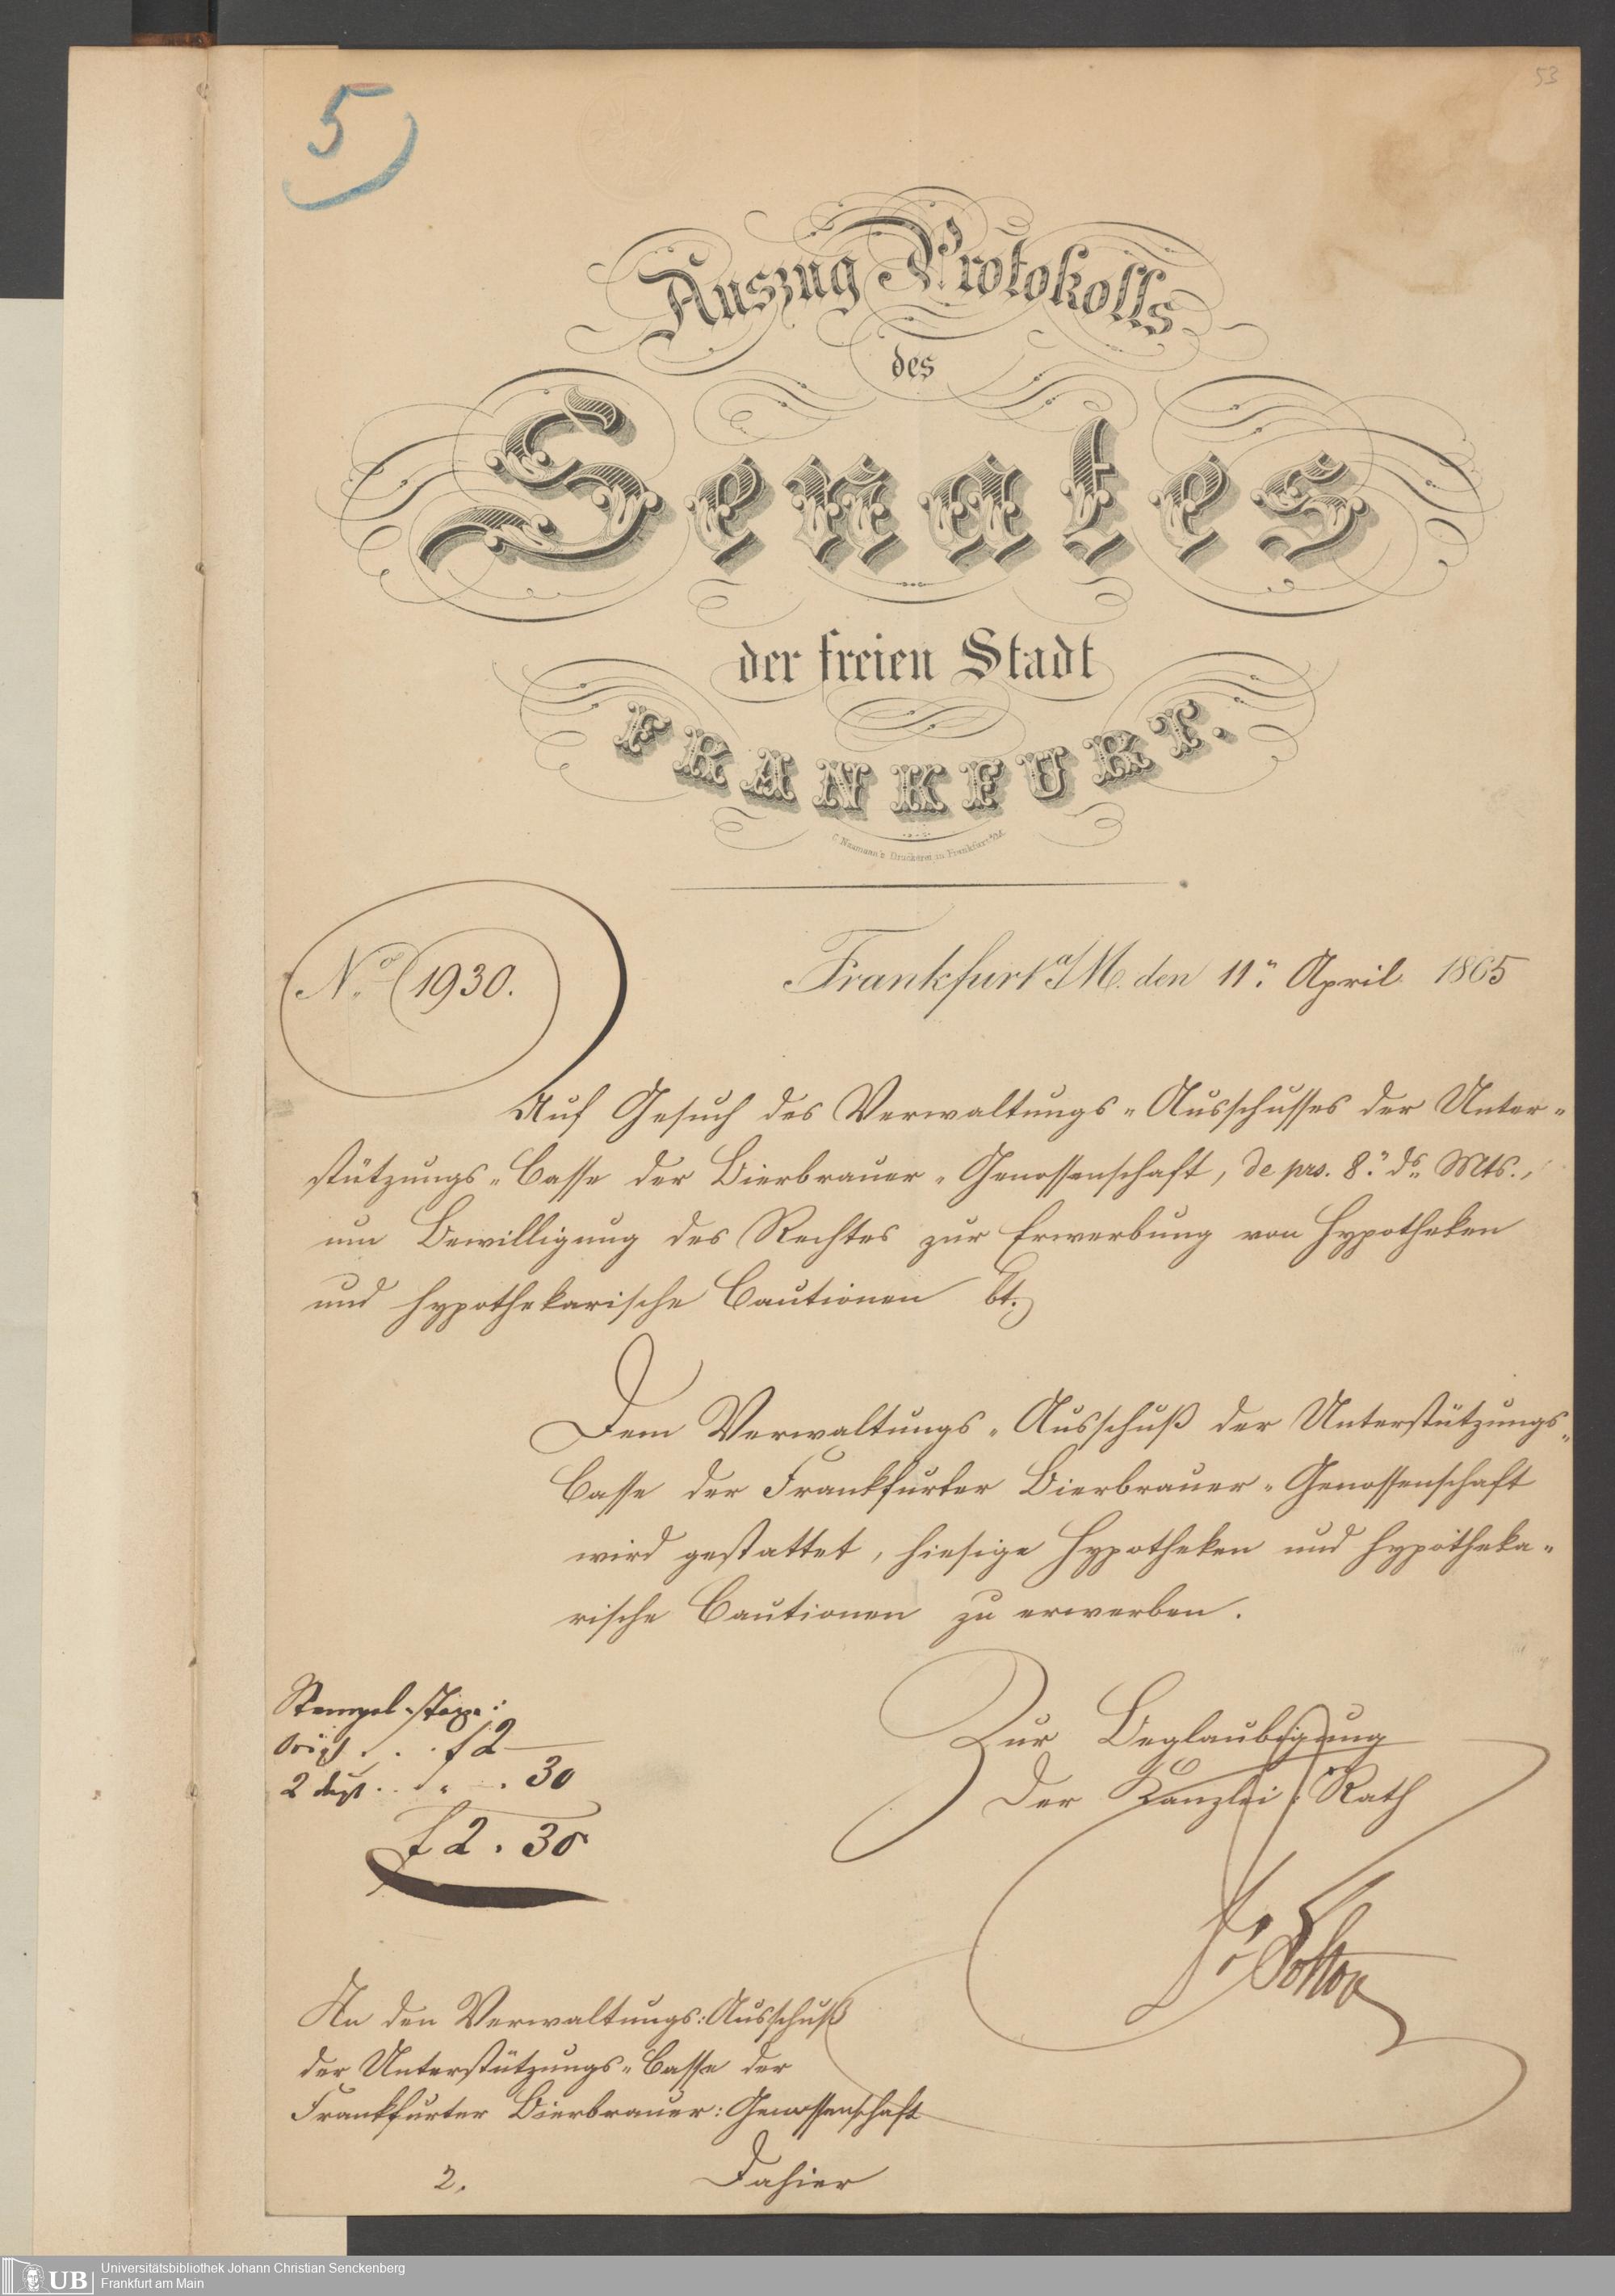 53
5
Auszug Protokolls
des
Senates
der freien Stadt
FRANKFURT.
C. Naumann's Druckerei in Frankfurt a/M.
No. 1930.
Frankfurt a/M. den 11n April 1865
Auf Gesuch des Verwaltungs-Ausschusses der Unter-
stützungs-Casse der Bierbrauer-Genossenschaft, de prs. 8n ds. Mts.,
um Bewilligung des Rechtes zur Erwerbung von Hypotheken
und hypothekarische Cautionen bt.
Dem Verwaltungs-Ausschuß der Unterstützungs-
Casse der Frankfurter Bierbrauer-Genossenschaft
wird gestattet, hiesige Hypotheken und hypotheka-
rische Cautionen zu erwerben.
Stempel-Taxe:
Origl . . . f 2
2 . . . 30
f 2 . 30
Zur Beglaubigung
Der Kanzlei-Rath
Dr
An den Verwaltungs-Ausschuß
der Unterstützungs-Casse der
Frankfurter Bierbrauer-Genossenschaft
2.
Dahier
UB
Universitätsbibliothek Johann Christian Senckenberg
Frankfurt am Main